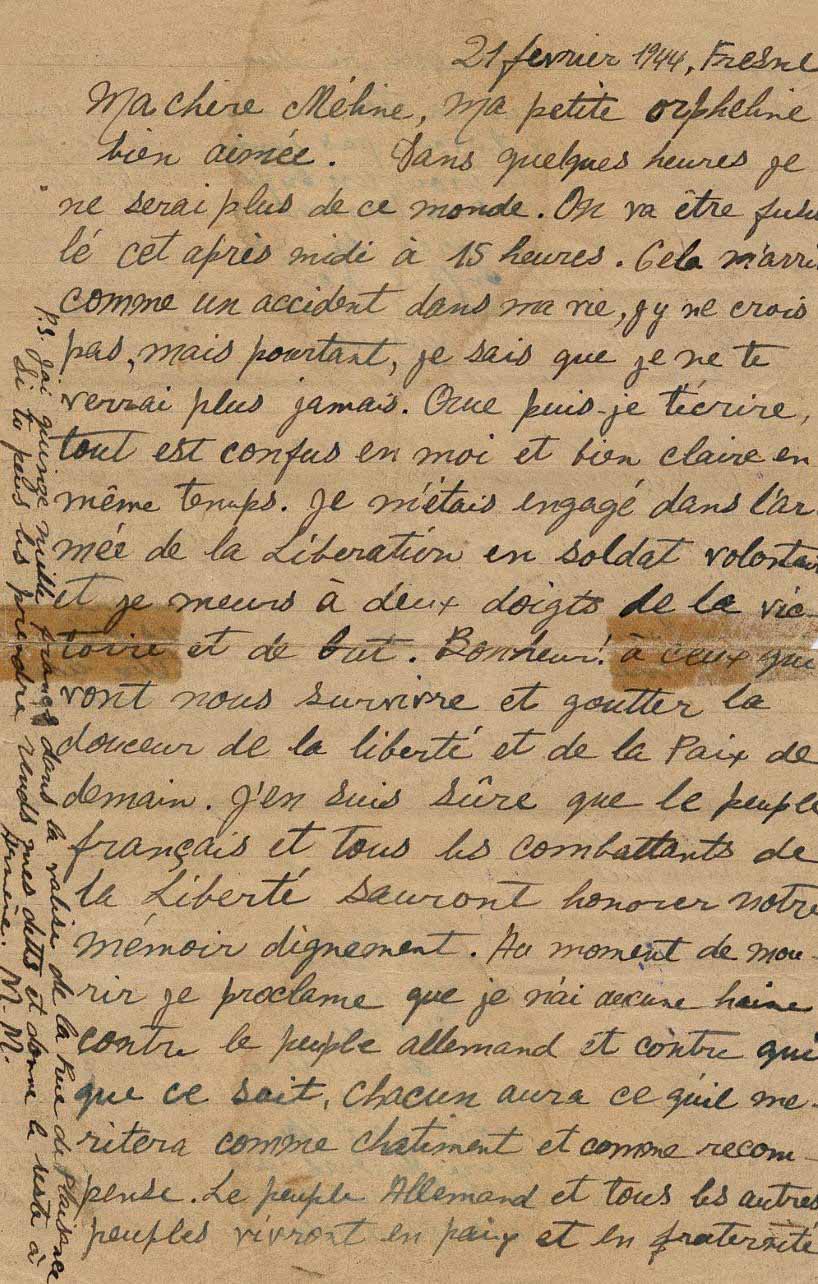 21 fevrier 1944, Fresne
Ma chère Méline, ma petite orpheline
bien aimée. Dans quelques heures je
ne serai plus de ce monde. On va être fusil
lé cet après midi à 15 heures. Cela m'arri
comme un accident dans ma vie, j'y ne crois
pas, mais pourtant, je sais que je ne te
verrai plus jamais. Que puis-je t'écrire,
tout est confus en moi et bien claire en
même temps. Je m'étais engagé dans l'ar
mée de la Libération en soldat volontai
et je meurs à deux doigts de la vic-
toire et de but. Bonheur! à ceux qui
vont nous survivre et goutter la
douceur de la liberté et de la Paix de
demain. J'en suis sûre que le peuple
français et tous les combattants de
la Liberté sauront honorer notre
mémoir dignement. Au moment de mou-
rir je proclame que je n'ai aucune haine
contre le peuple allemand et contre qui
que ce soit, chacun aura ce qu'il me-
ritera comme chatiment et comme recom-
pense. Le peuple Allemand et tous les autres
peuples vivront en paix et en fraternité
P.S. J'ai quinze mille francs dans la valise de la Rue de Plaisance
Si tu peus les prendre rends mes dettes et donne le reste à
Armène. M. M.